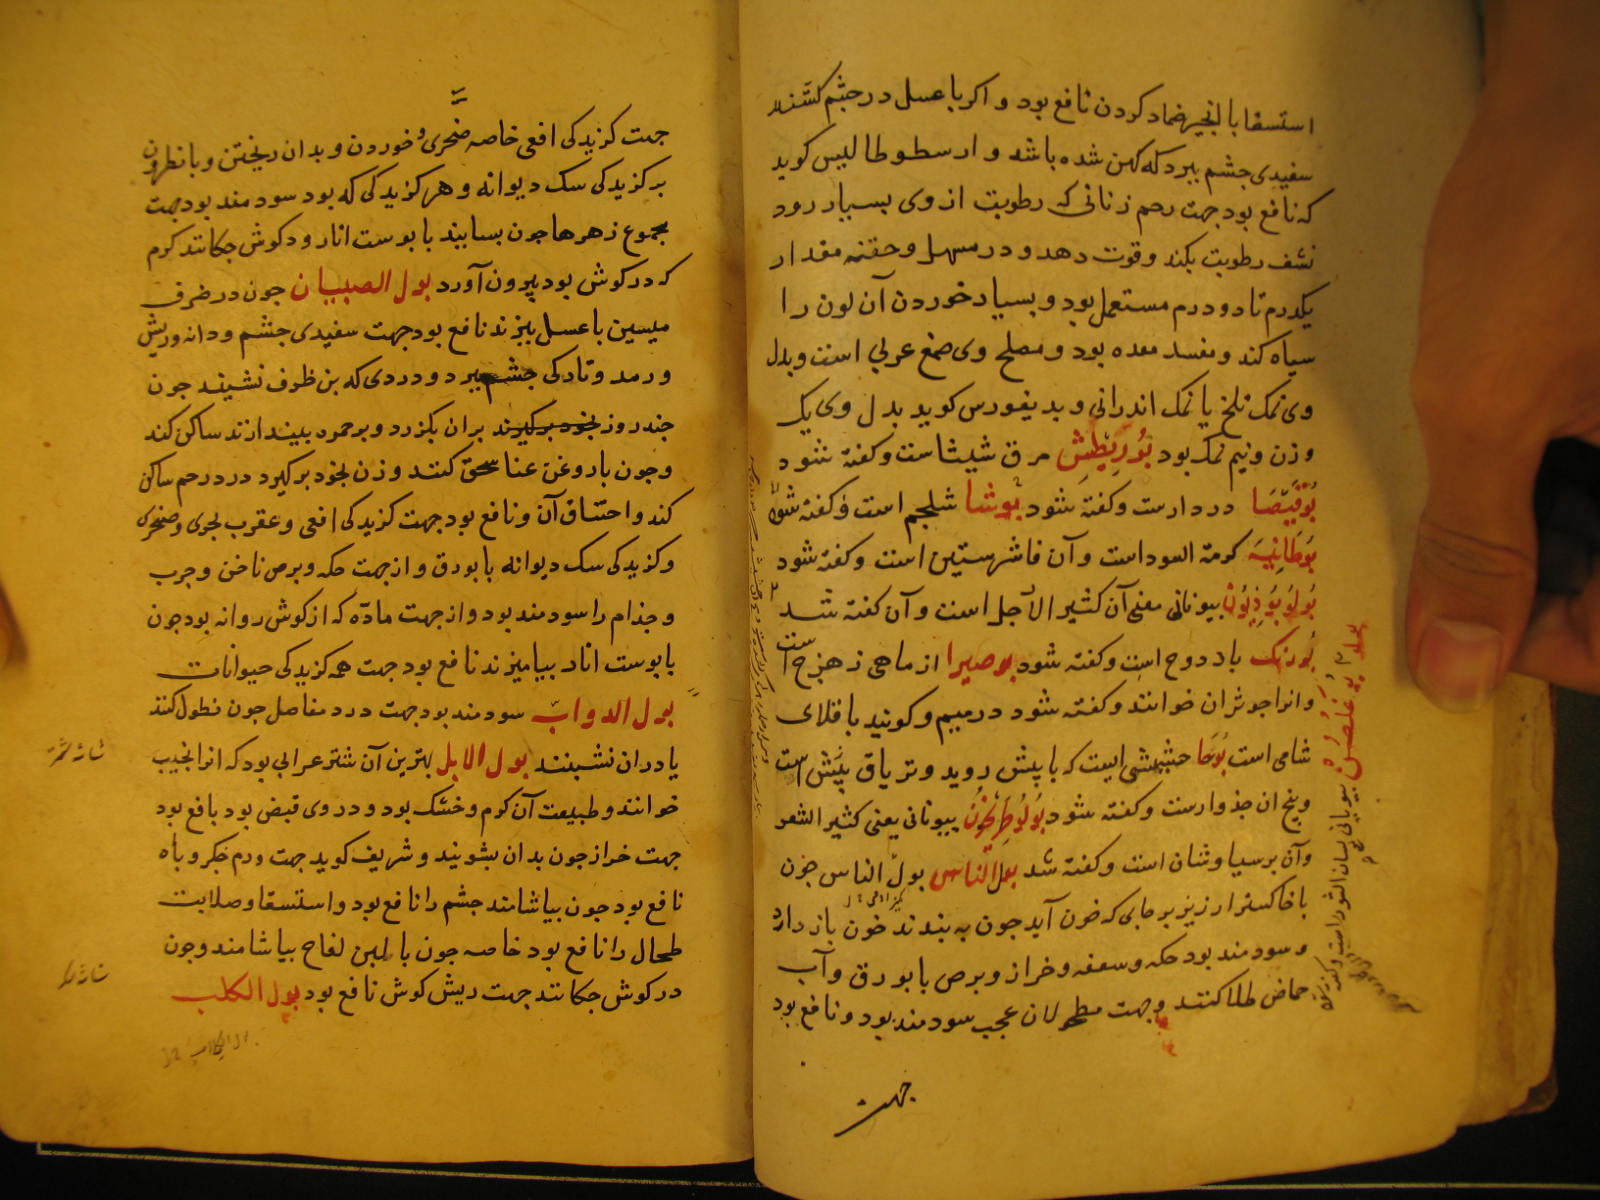 استسقا با انجیر ضماد کردن نافع بود و اکر با عسل در چشم کشند
سفیدی جشم ببرد که کهن شده باشد و ارسطوطالیس کوید
که نافع بود جهت رحم زنانی که رطوبت از وی بسیار رود
نشف رطوبت بکند و قوت دهد و در مسهل و حقنه مقدار
یکدرم تا دو درم مستعمل بود و بسیار خوردن آن لون را
سیاه کند و مفسد معده بود و مصلح وی صمغ عربی است و بدل
وی نمک تلخ یا نمک اندرانی و بدیغورس کوید بدل وی یک
وزن و نیم نمک بود بوریطش مرقشیثاست و کفته شود
بوقیصا دردارست و کفته شود بوشا شلجم است و کفته شود
بوطانیه کرمة السوداست و آن فاشرستین است و کفته شود
بولوبوذیون بیونانی معنی آن کثیر الارجل است و آن کفته شد
بورنک بادروج است و کفته شود بوصیرا از ماهی زهرج است
و انرا جوثران خوانند و کفته شود در میم و کویند باقلای
شامی است بوحا حشیشی است که با بیش روید و تریاق بیش است
و بیخ ان جدوارست و کفته شود بولوطریخون بیونانی یعنی کثیر الشعر
و آن برسیاوشان است و کفته شد بول الناس بول الناس جون
با خاکستر رز بر جایی که خون آید جون به بندند خون باز دارد
و سودمند بود حکه و سعفه و خراز و برص با بورق و آب
حماض طلا کنند و جهت مطحولان عجب سودمند بود و نافع بود
جهت
جهت کزیدکی افعی خاصه صخری و خوردن و بدان ریختن و با نطرون
بر کزیدکی سک دیوانه و هر کزیدکی که بود سودمند بود جهت
مجموع زهرها جون بسایند با بوست انار و در کوش جکانند کرم
که در کوش بود بیرون آورد بول الصبیان جون در ظرف
مسین با عسل ببزند نافع بود جهت سفیدی جشم و دانه و ریش
و رمد و تاریکی جشم ببرد و دردی که بن ظرف نشیند جون
جند روز بران بکذرد و بر حمره بیندازند ساکن کند
و جون با روغن حنا سحق کنند و زن بخود برکیرد درد رحم ساکن
کند و احتناق آن و نافع بود جهت کزیدکی افعی و عقرب بحری و صخری
و کزیدکی سک دیوانه با بورق و از جهت حکه و برص ناخن و جرب
و جذام را سودمند بود و از جهت مادّه که از کوش روانه بود جون
با بوست انار بیامیزند نافع بود جهت همه کزیدکی حیوانات
بول الدواب سودمند بود جهت درد مفاصل جون نطول کنند
یا دران نشینند بول الابل بهترین آن شتر عرابی بود که انرا نجیب
خوانند و طبیعت آن کرم و خشک بود و در وی قبض بود نافع بود
جهت خراز جون بدان بشویند و شریف کوید جهت ورم جکر و باه
نافع بود جون بیاشامند جشم را نافع بود و استسقا و صلابت
طحال را نافع بود خاصه جون با لبن لفاح بیاشامند و جون
در کوش جکانند جهت ریش کوش نافع بود بول الکلب